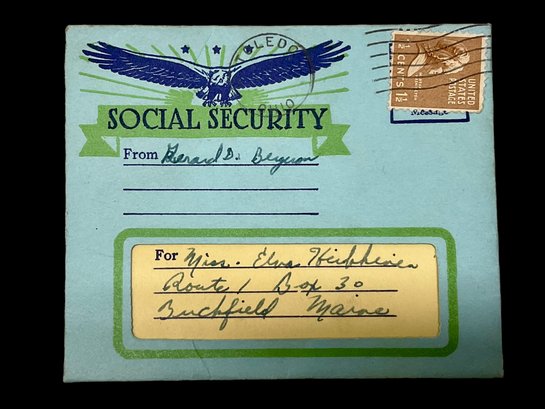 TOLEDO
OHIO
1½ CENTS 1½
UNITED
STATES
POSTAGE
SOCIAL SECURITY
From Gerard D.
For Miss. Elva
Route 1 Box 30
Buckfield Maine